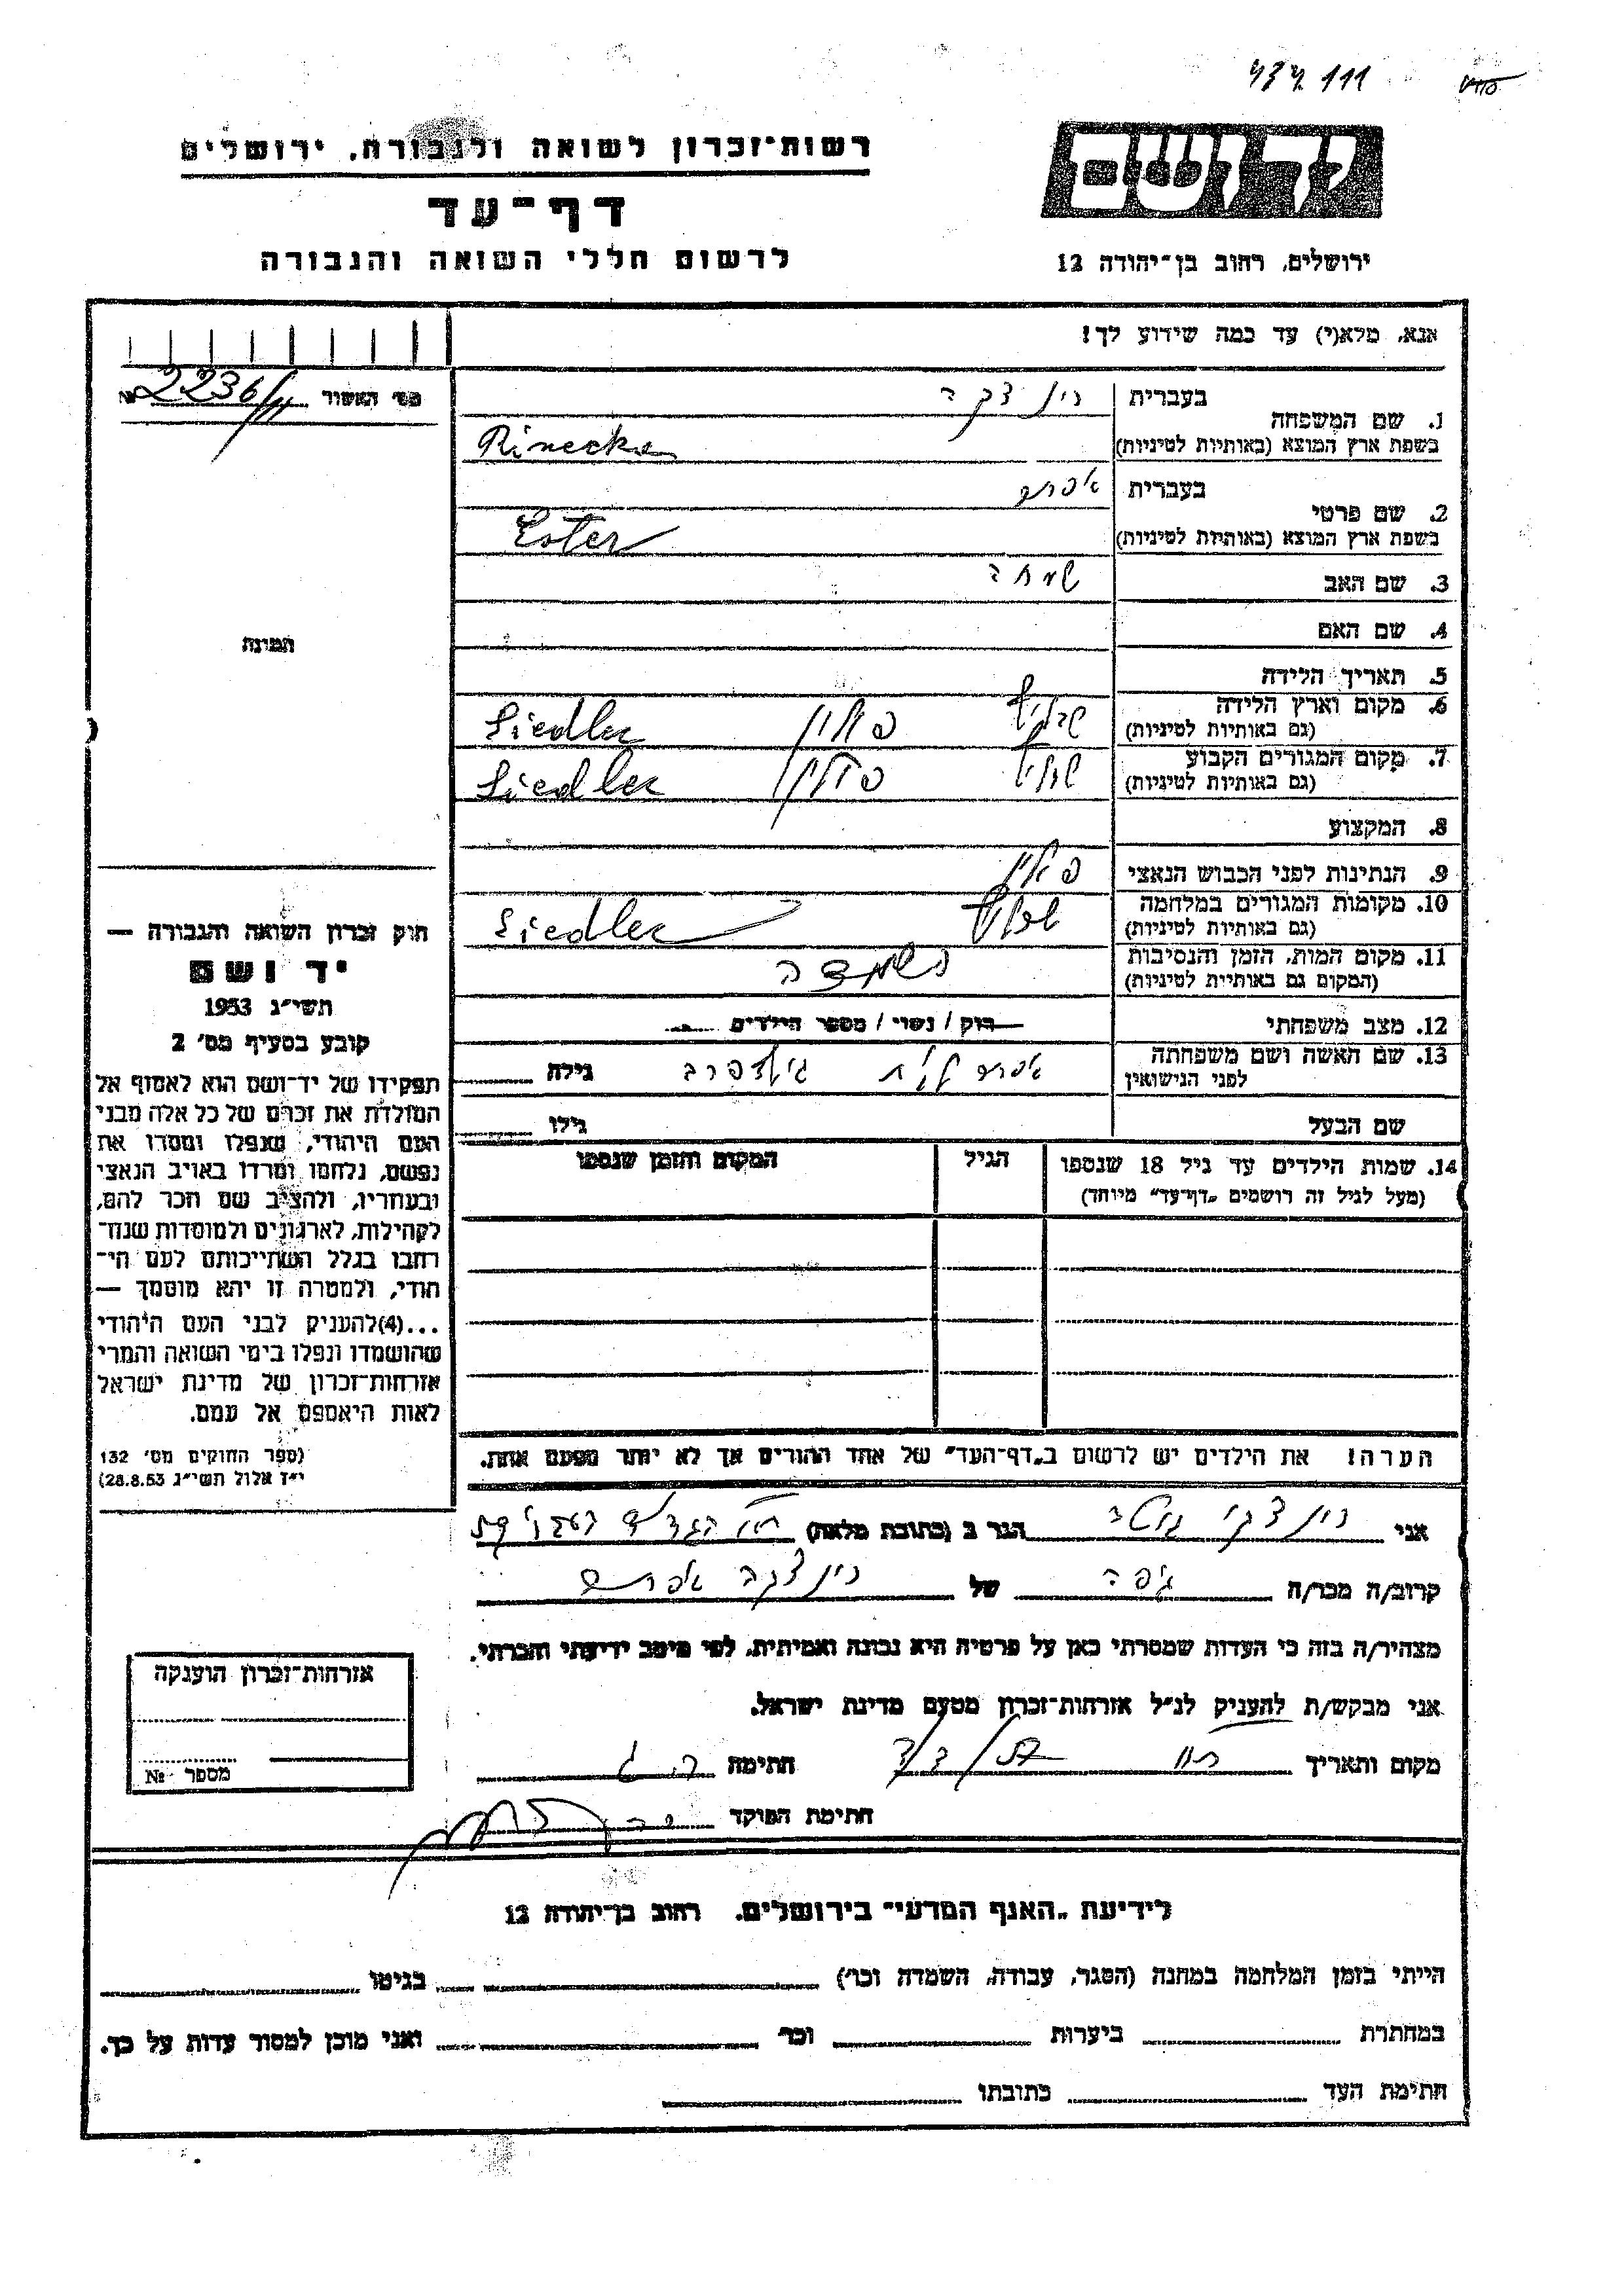 רשות־זכרון לשואה ולגבורה, ירושלים
דף־עד
לרשום חללי השואה והגבורה
יד ושם
ירושלים, רחוב בן־יהודה 12
אנא, מלא(י) עד כמה שידוע לך!
מס' האשור № 2236/
1. שם המשפחה
בעברית רינצקה
בשפת ארץ המוצא (באותיות לטיניות) Rinecka
2. שם פרטי
בעברית אסתר
בשפת ארץ המוצא (באותיות לטיניות) Ester
3. שם האב שמחה
4. שם האם
5. תאריך הלידה
6. מקום וארץ הלידה
(גם באותיות לטיניות) פולין Siedlec
7. מקום המגורים הקבוע
(גם באותיות לטיניות) פולין Siedlec
8. המקצוע
9. הנתינות לפני הכבוש הנאצי פולין
10. מקומות המגורים במלחמה
(גם באותיות לטיניות) Siedlec
11. מקום המות, הזמן והנסיבות
(המקום גם באותיית לטיניות) השמדה
12. מצב משפחתי רוק / נשוי / מספר הילדים
13. שם האשה ושם משפחתה
לפני הנישואין גולדפרב גילה
שם הבעל גילו
14. שמות הילדים עד גיל 18 שנספו
(מעל לגיל זה רושמים „דף־עד" מיוחד)
הגיל
המקום והזמן שנספו
הערה! את הילדים יש לרשום ב„דף־העד" של אחד ההורים אך לא יותר מפעם אחת.
התמונה
חוק זכרון השואה והגבורה —
יד ושם
תשי״ג 1953
קובע בסעיף מס' 2
תפקידו של יד־ושם הוא לאסוף אל
המולדת את זכרם של כל אלה מבני
העם היהודי, שנפלו ומסרו את
נפשם, נלחמו ומרדו באויב הנאצי
ובעוזריו, ולהציב שם וזכר להם,
לקהילות, לארגונים ולמוסדות שנח־
רבו בגלל השתייכותם לעם הי־
הודי, ולמטרה זו יהא מוסמך —
...(4)להעניק לבני העם היהודי
שהושמדו ונפלו בימי השואה והמרי
אזרחות־זכרון של מדינת ישראל
לאות היאספם אל עמם.
(ספר החוקים מס' 132
י״ז אלול תשי״ג 28.8.53)
אני רינצקי הגר ב (כתובת מלאה)
קרוב/ה מכר/ה גיסה של רינצקה אסתר
מצהיר/ה בזה כי העדות שמסרתי כאן על פרטיה היא נכונה ואמיתית, לפי מיטב ידיעתי והכרתי.
אני מבקש/ת להעניק לנ״ל אזרחות־זכרון מטעם מדינת ישראל.
מקום ותאריך חתימה
חתימת הפוקד
אזרחות־זכרון הוענקה
מספר №
לידיעת „האגף המדעי" בירושלים, רחוב בן־יהודה 12
הייתי בזמן המלחמה במחנה (הסגר, עבודה, השמדה וכו') בגיטו
במחתרת ביערות וכו' ואני מוכן למסור עדות על כך.
חתימת העד כתובתו